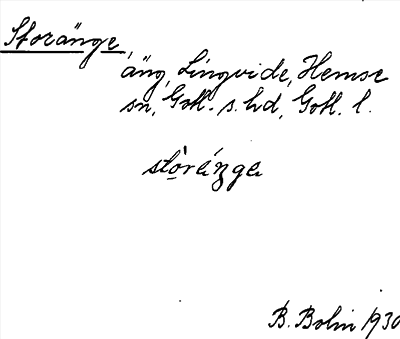 Storänge,
äng, Lingvide, Hemse
sn, Gotl. s. hd, Gotl. l.
stòrä́nge
B. Bolin 1930